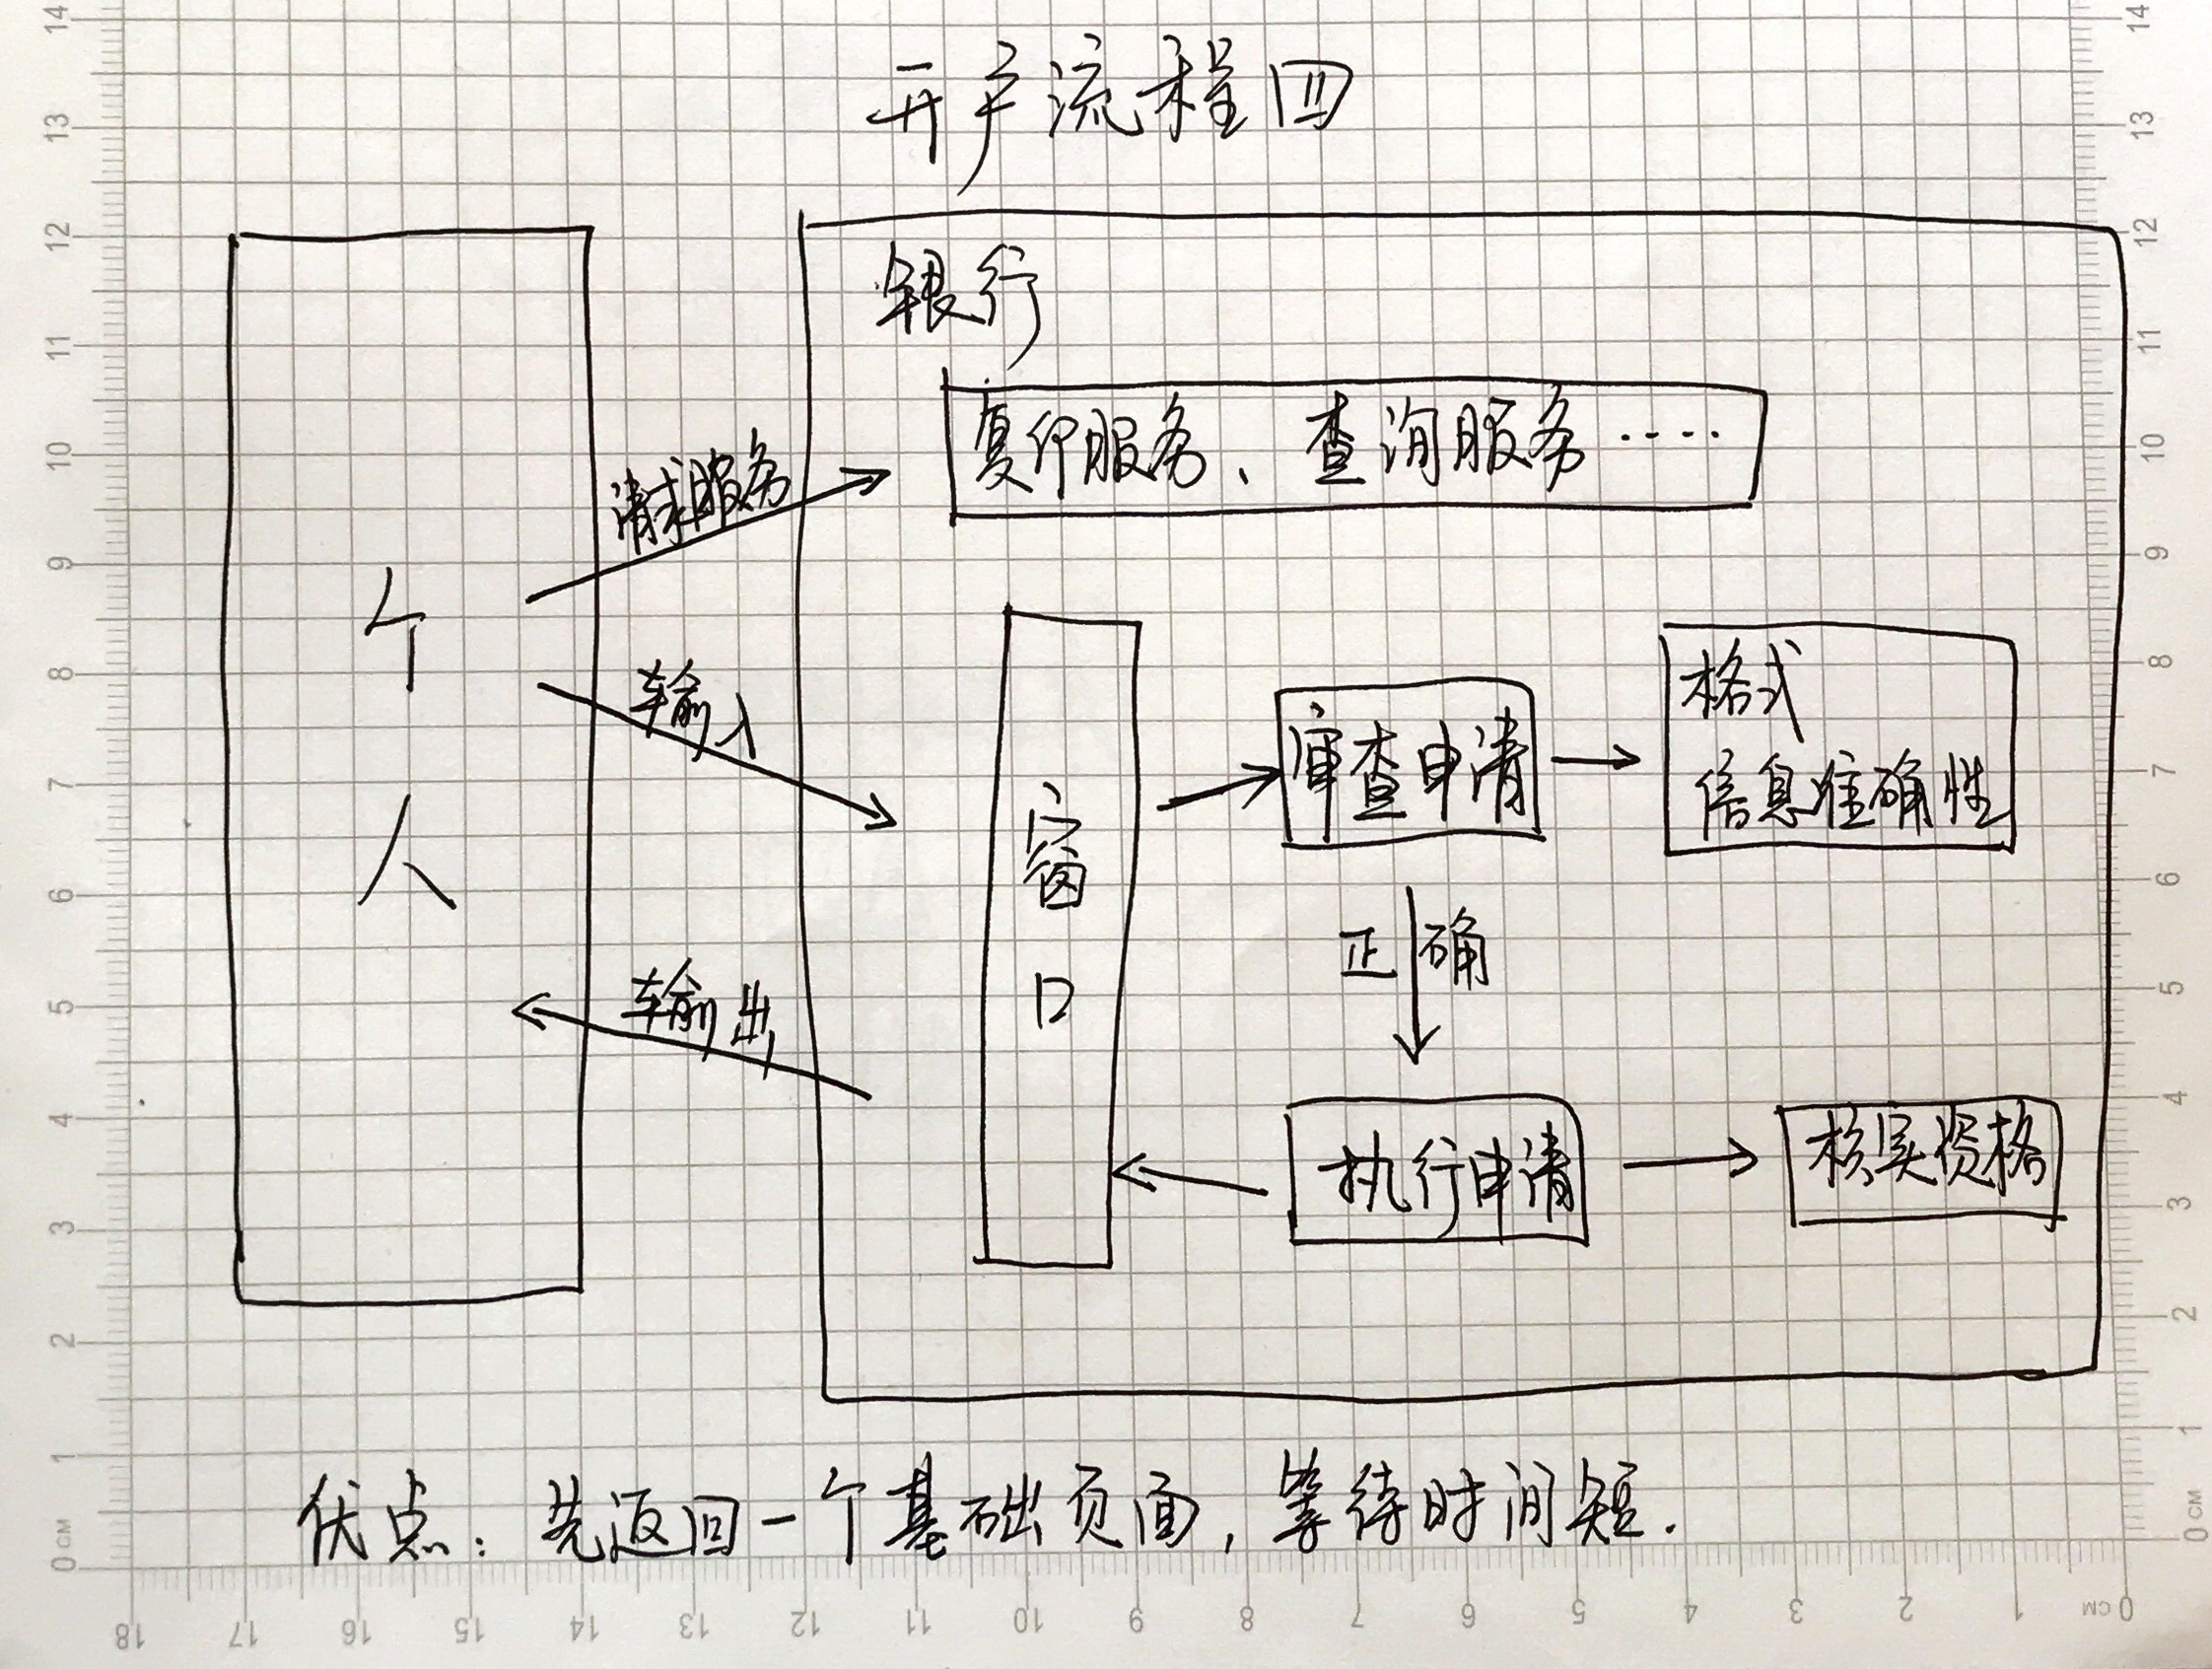 开户流程四
银行
复印服务、查询服务....
请求服务
个人
输入
窗口
审查申请
格式
信息准确性
正确
输出
执行申请
核实资格
优点：先返回一个基础页面，等待时间短.
14
13
12
11
10
9
8
7
6
5
4
3
2
1
0 CM
14
13
12
11
10
9
8
7
6
5
4
3
2
1
0 CM
18 17 16 15 14 13 12 11 10 9 8 7 6 5 4 3 2 1 0 CM